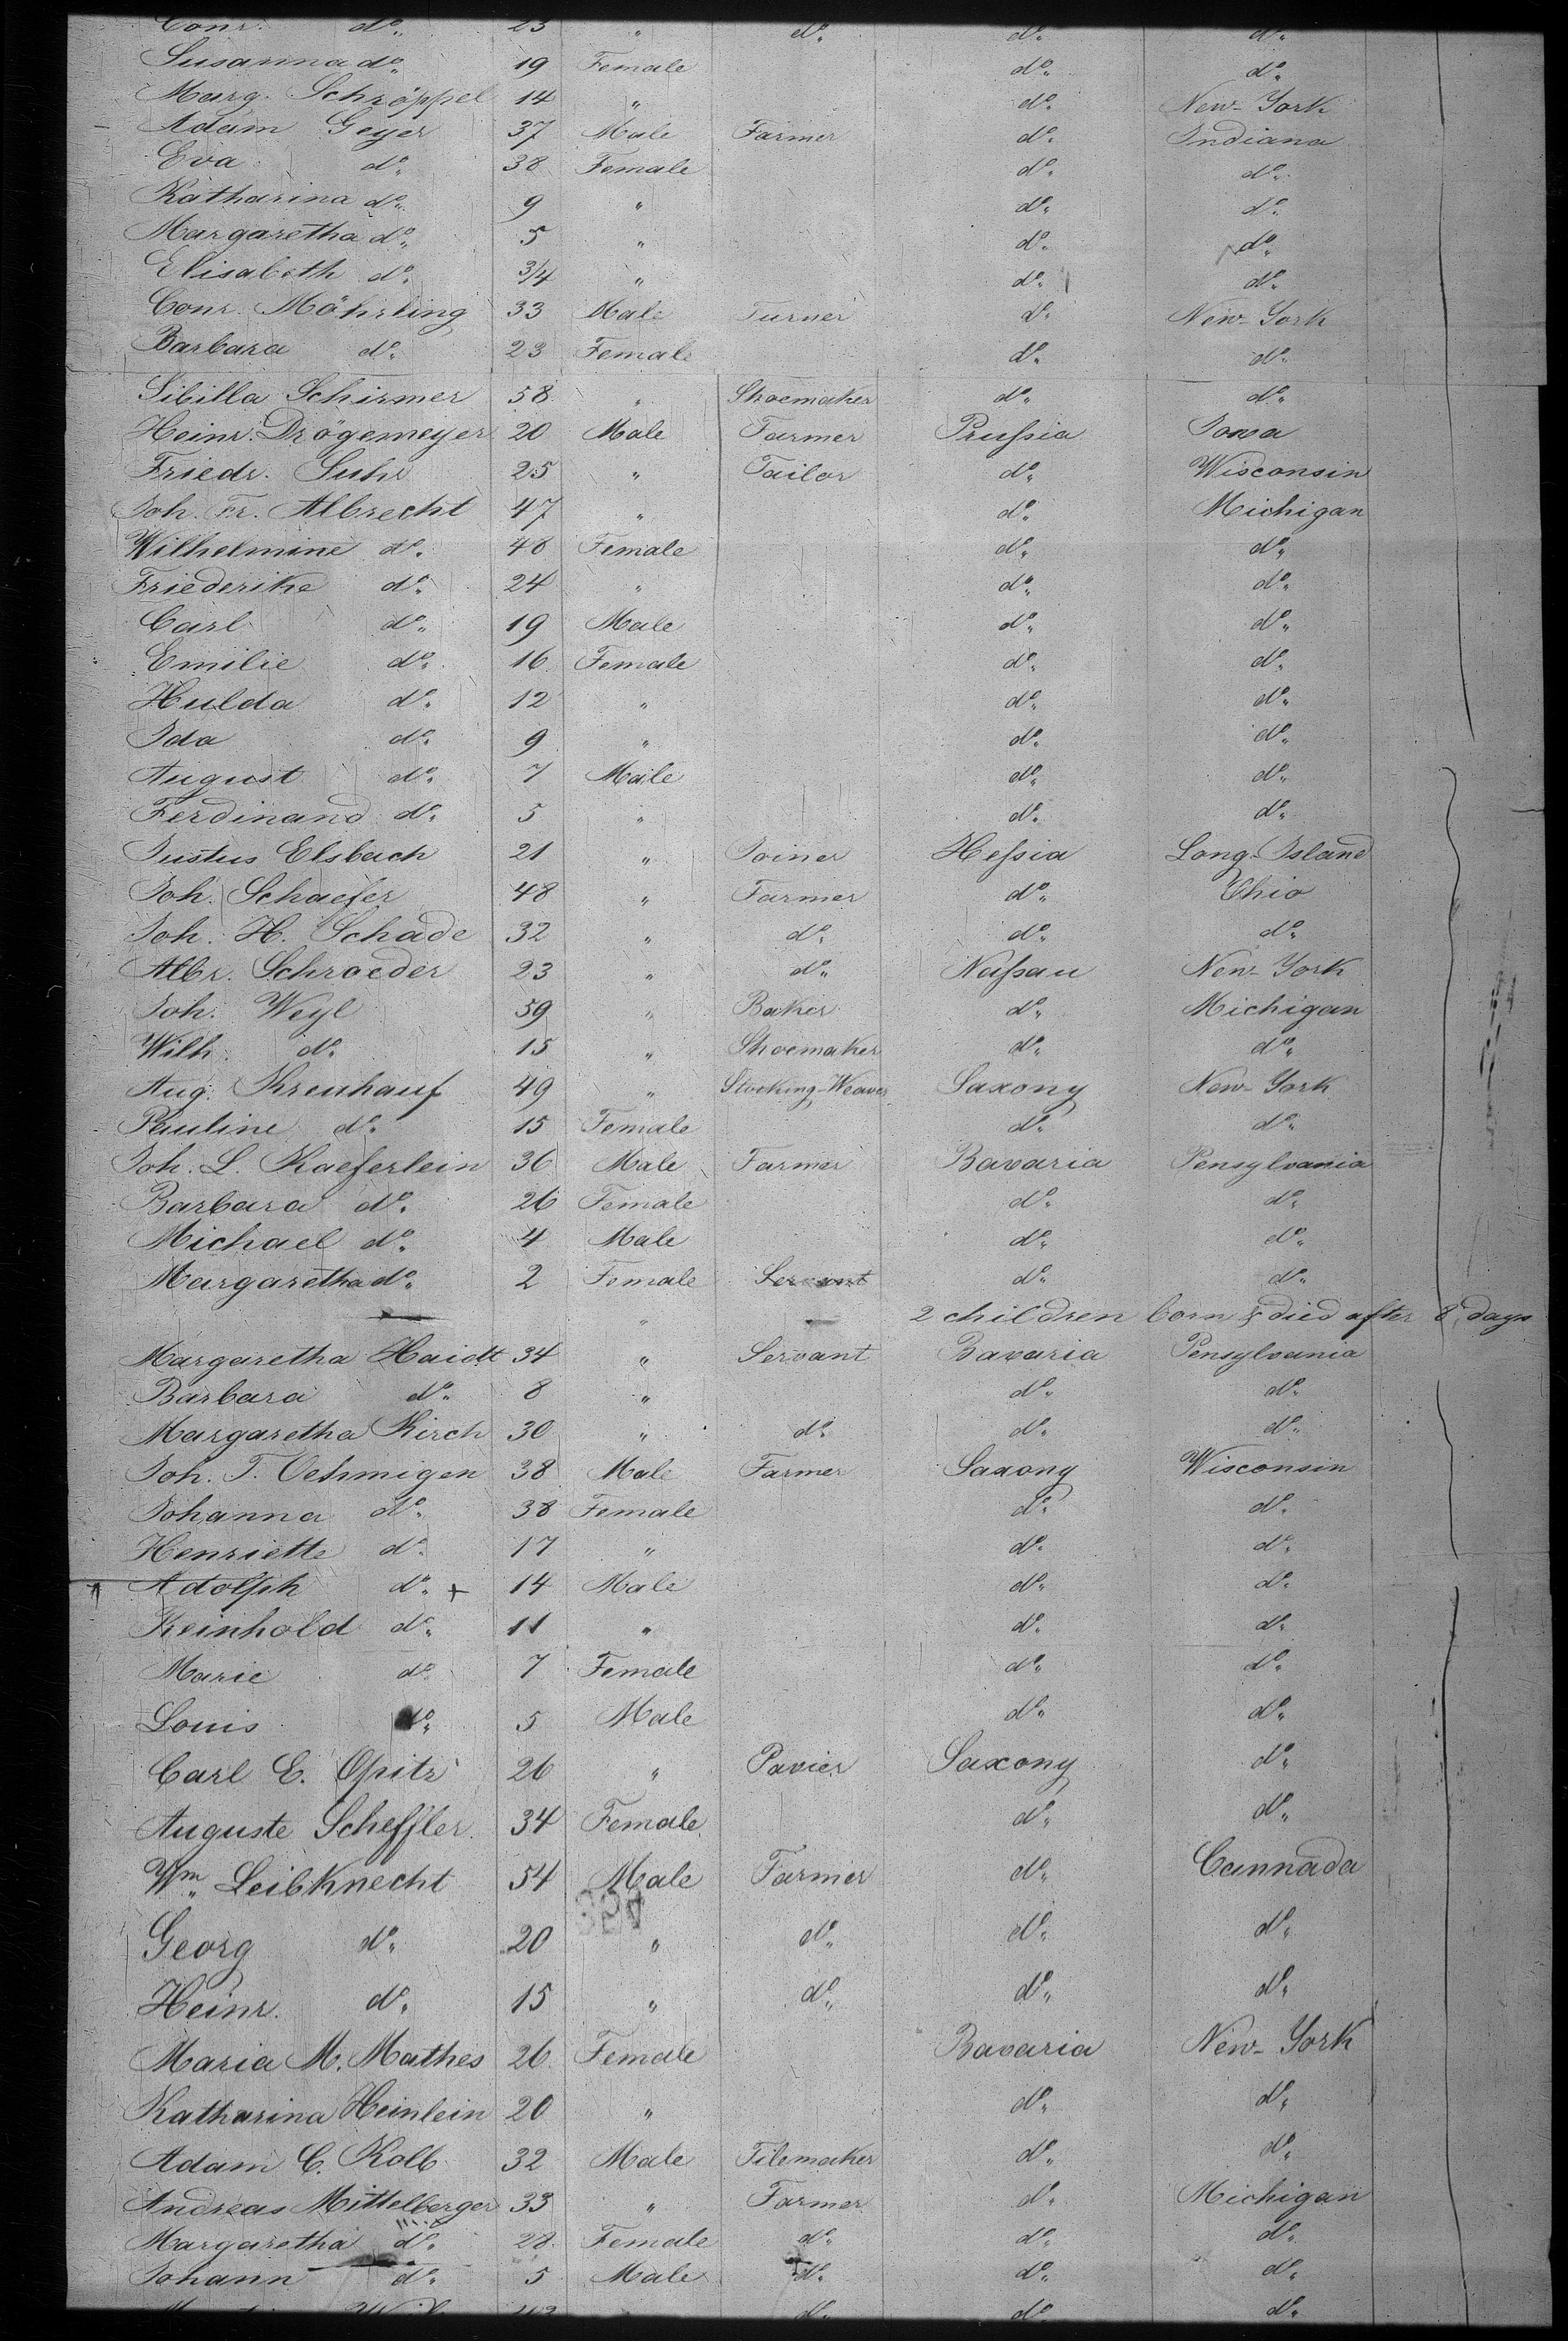 Conr. do. 23 " do. do. do.
Susanna do. 19 Female do. do.
Marg. Schröppel 14 " do. New-York
Adam Geyer 37 Male Farmer do. Indiana
Eva do. 38 Female do. do.
Katharina do. 9 " do. do.
Margaretha do. 5 " do. do.
Elisabeth do. 3/4 " do. do.
Conr. Möhrling 33 Male Turner do. New-York
Barbara do. 23 Female do. do.
Sibilla Schirmer 58 " Shoemaker do. do.
Heinr. Drögemeyer 20 Male Farmer Prussia Iowa
Friedr. Suhr 25 " Tailor do. Wisconsin
Joh. Fr. Albrecht 47 " do. Michigan
Wilhelmine do. 48 Female do. do.
Friederike do. 24 " do. do.
Carl do. 19 Male do. do.
Emilie do. 16 Female do. do.
Hulda do. 12 " do. do.
Ida do. 9 " do. do.
August do. 7 Male do. do.
Ferdinand do. 5 " do. do.
Justus Elsbach 21 " Joiner Hessia Long-Island
Joh. Schaefer 48 " Farmer do. Ohio
Joh. H. Schade 32 " do. do. do.
Albr. Schroeder 23 " do. Nassau New-York
Joh. Weyl 59 " Baker do. Michigan
Wilh. do. 15 " Shoemaker do. do.
Aug. Kreuhauf 49 " Stocking-Weaver Saxony New-York
Pauline do. 15 Female do. do.
Joh. L. Kaeferlein 36 Male Farmer Bavaria Pensylvania
Barbara do. 26 Female do. do.
Michael do. 4 Male do. do.
Margaretha do. 2 Female Servant do. do.
" 2 children born & died after 8 days
Margaretha Haidt 34 " Servant Bavaria Pensylvania
Barbara do. 8 " do. do.
Margaretha Kirch 30 " do. do. do.
Joh. T. Oehmigen 38 Male Farmer Saxony Wisconsin
Johanna do. 38 Female do. do.
Henriette do. 17 " do. do.
Adolph do. + 14 Male do. do.
Reinhold do. 11 " do. do.
Marie do. 7 Female do. do.
Louis do. 5 Male do. do.
Carl E. Opitz 26 " Pavier Saxony do.
Auguste Scheffler 34 Female do. do.
Wm. Leibknecht 54 Male Farmer do. Cannada
Georg do. 20 " do. do. do.
Heinr. do. 15 " do. do. do.
Maria M. Mathes 26 Female Bavaria New-York
Katharina Heinlein 20 " do. do.
Adam C. Kolb 32 Male Tilemaker do. do.
Andreas Mittelberger 33 " Farmer do. Michigan
Margaretha do. 28 Female do. do. do.
Johann do. 5 Male do. do. do.
do. do. do.